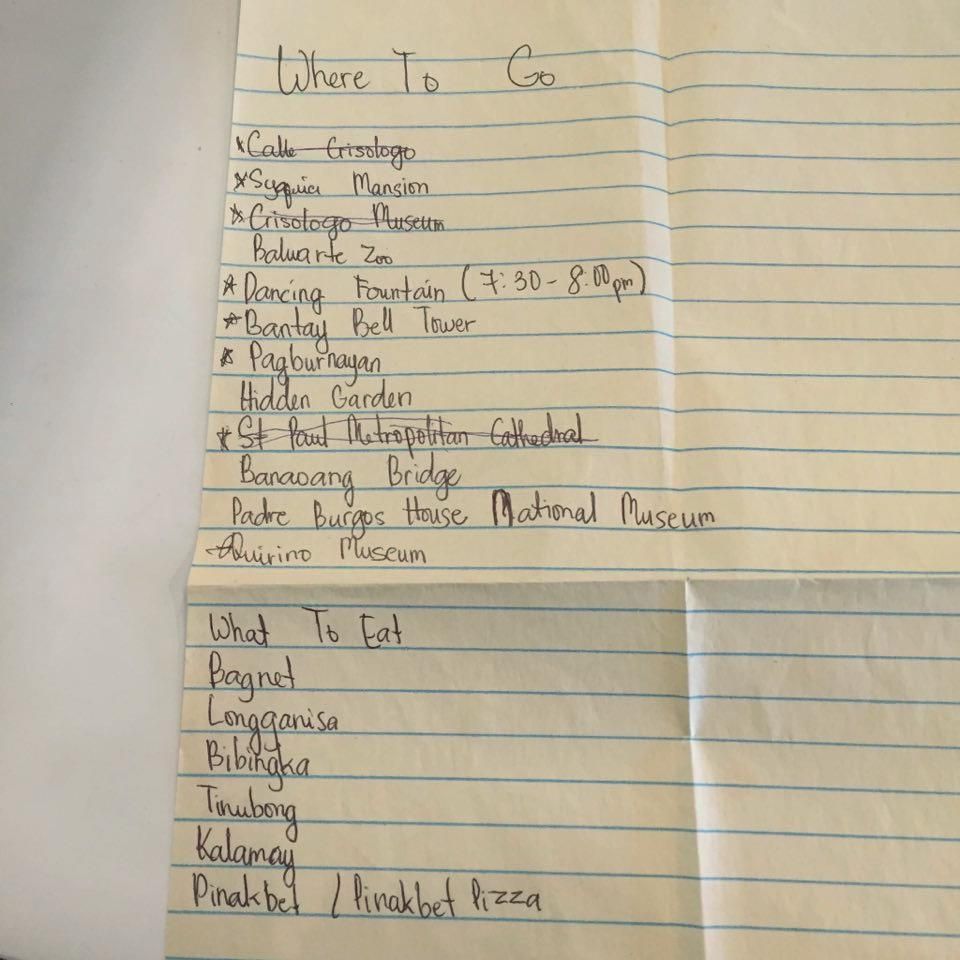 Where To Go
*Calle Crisologo
*Syquia Mansion
*Crisologo Museum
Baluarte Zoo
*Dancing Fountain (7:30 - 8:00pm)
*Bantay Bell Tower
*Pagburnayan
Hidden Garden
*St Paul Metropolitan Cathedral
Banaoang Bridge
Padre Burgos House National Museum
*Quirino Museum
What To Eat
Bagnet
Longganisa
Bibingka
Tinubong
Kalamay
Pinakbet / Pinakbet Pizza